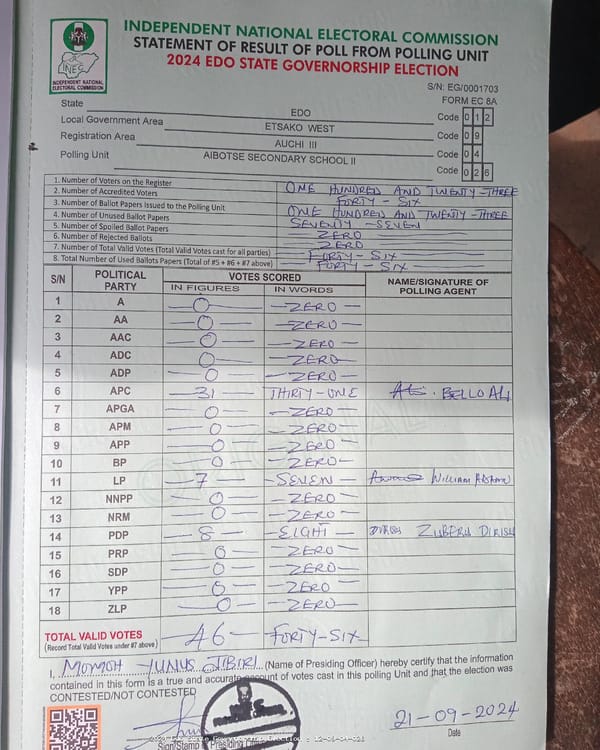 INDEPENDENT NATIONAL ELECTORAL COMMISSION
STATEMENT OF RESULT OF POLL FROM POLLING UNIT
2024 EDO STATE GOVERNORSHIP ELECTION
INEC
INDEPENDENT NATIONAL
ELECTORAL COMMISSION
S/N: EG/0001703
FORM EC 8A
State EDO Code 0 1 2
Local Government Area ETSAKO WEST Code 0 9
Registration Area AUCHI III Code 0 4
Polling Unit AIBOTSE SECONDARY SCHOOL II Code 0 2 6
1. Number of Voters on the Register ONE HUNDRED AND TWENTY-THREE
2. Number of Accredited Voters FORTY-SIX
3. Number of Ballot Papers Issued to the Polling Unit ONE HUNDRED AND TWENTY-THREE
4. Number of Unused Ballot Papers SEVENTY-SEVEN
5. Number of Spoiled Ballot Papers ZERO
6. Number of Rejected Ballots ZERO
7. Number of Total Valid Votes (Total Valid Votes cast for all parties) FORTY-SIX
8. Total Number of Used Ballots Papers (Total of #5 + #6 + #7 above) FORTY-SIX
S/N POLITICAL PARTY VOTES SCORED NAME/SIGNATURE OF POLLING AGENT
IN FIGURES IN WORDS
1 A 0 ZERO
2 AA 0 ZERO
3 AAC 0 ZERO
4 ADC 0 ZERO
5 ADP 0 ZERO
6 APC 31 THIRTY-ONE BELLO ALI
7 APGA 0 ZERO
8 APM 0 ZERO
9 APP 0 ZERO
10 BP 0 ZERO
11 LP 7 SEVEN WILLIAM
12 NNPP 0 ZERO
13 NRM 0 ZERO
14 PDP 8 EIGHT ZUBERU
15 PRP 0 ZERO
16 SDP 0 ZERO
17 YPP 0 ZERO
18 ZLP 0 ZERO
TOTAL VALID VOTES 46 FORTY-SIX
(Record Total Valid Votes under #7 above)
I, MOMOH YUNUS (Name of Presiding Officer) hereby certify that the information
contained in this form is a true and accurate account of votes cast in this polling Unit and that the election was
CONTESTED/NOT CONTESTED
21-09-2024
Sign/Stamp of Presiding Date